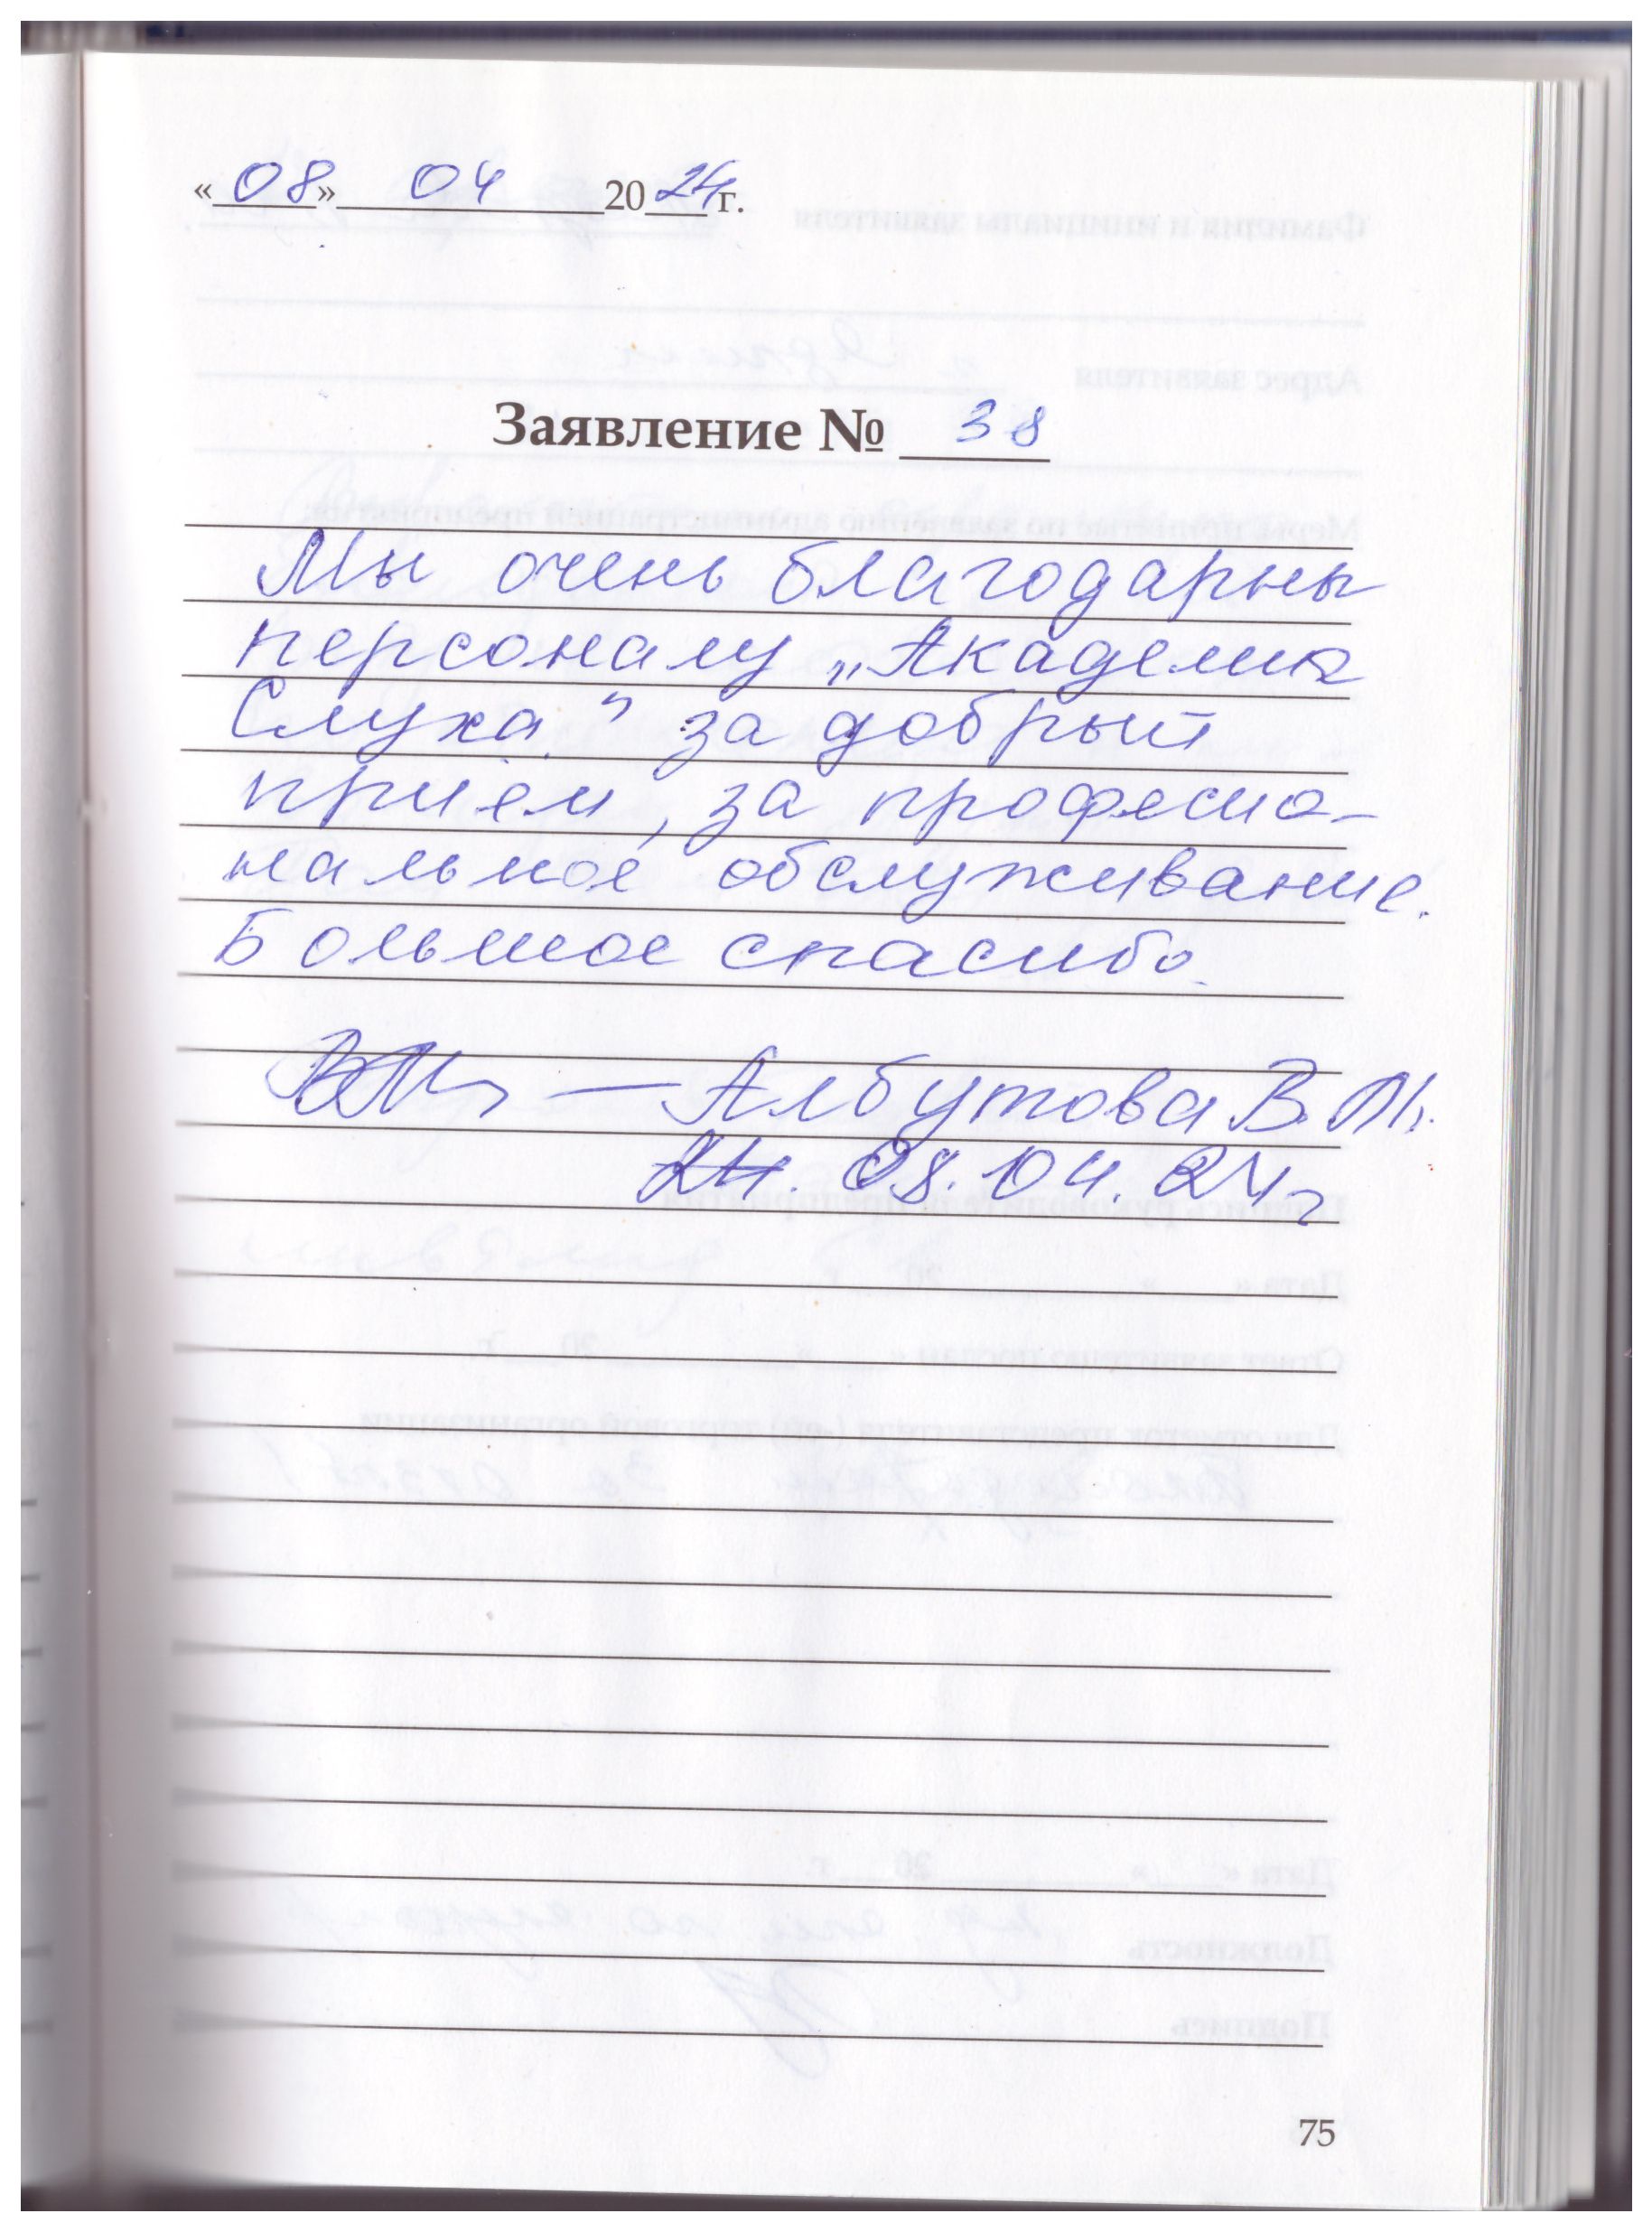 «08» 04 2024 г.
Заявление № 38
Мы очень благодарны
персоналу „Академия
Слуха" за добрый
приём, за професио-
нальное обслуживание.
Большое спасибо.
— Албутова В.М.
24. 08.04.24г
75